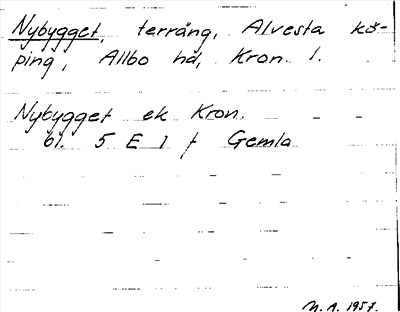 Nybygget, terräng, Alvesta kö-
ping, Allbo hd, Kron. l.
Nybygget ek Kron.
bl. 5 E 1 f Gemla
N. A. 1957.